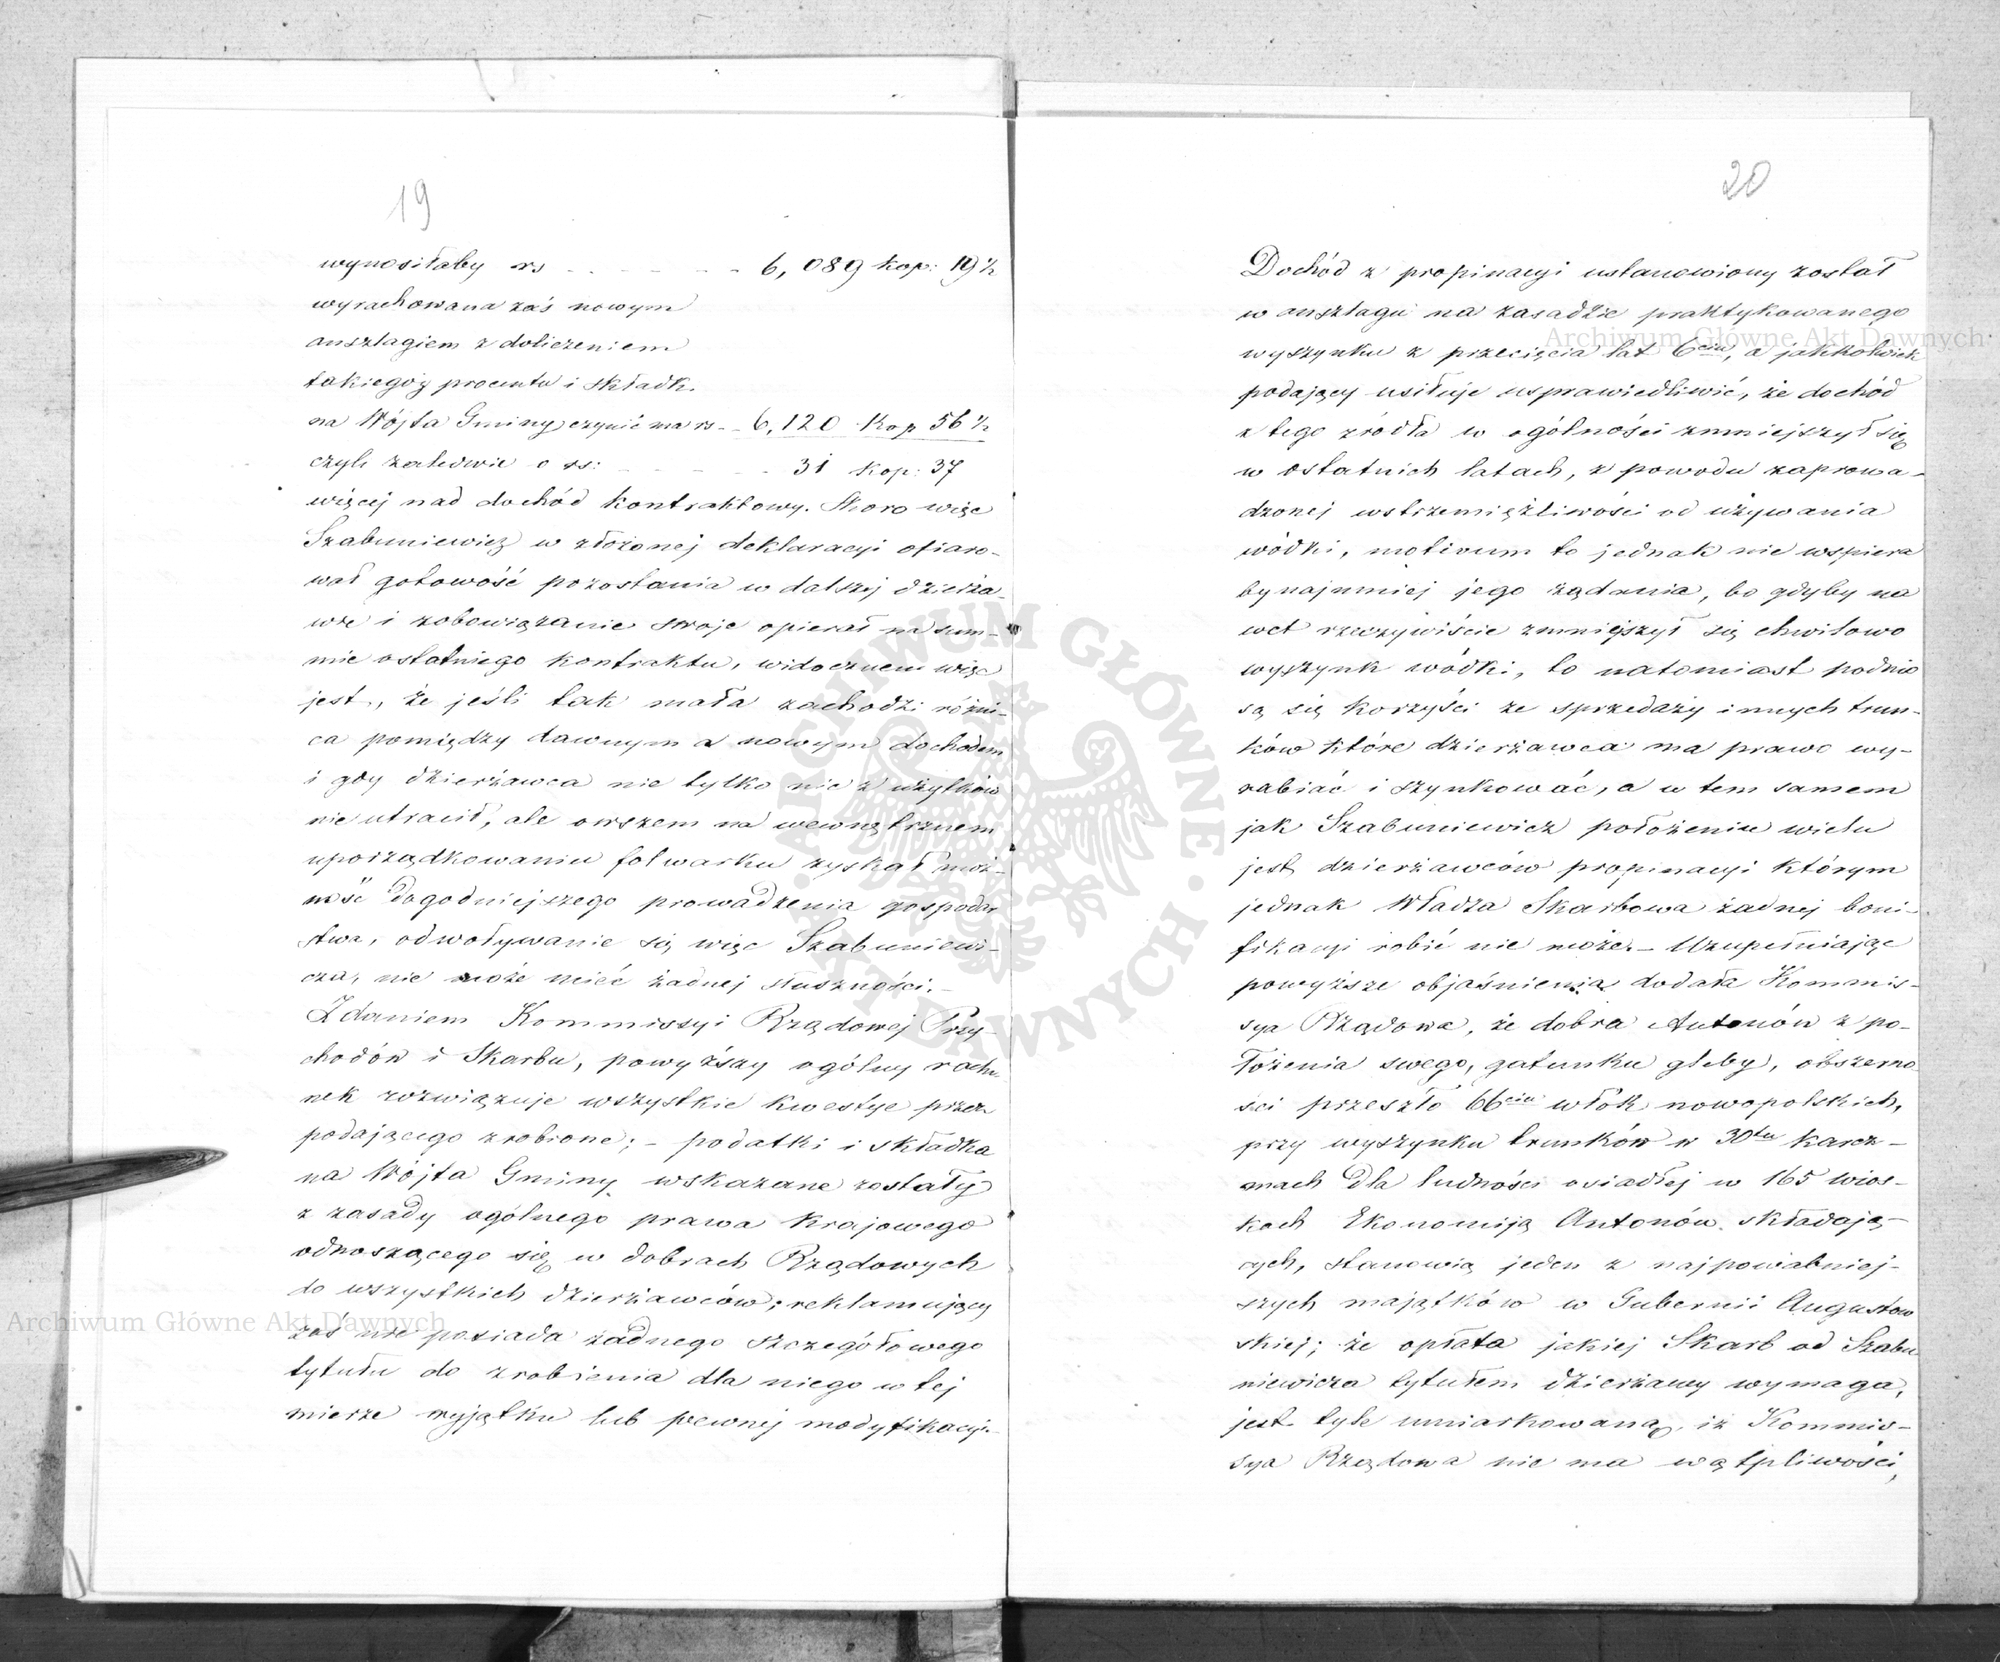 19
wynosiłaby rs - - - - - 6,089 kop: 19½
wyrachowana zaś nowym
anszlagiem z doliczeniem
takiegoż procentu i składk.
na Wójta Gminy czynić ma rs - 6,120 Kop 56½
czyli zaledwie o rs: - - - - 31 kop: 37
więcej nad dochód kontraktowy. Skoro więc
Szabuniewicz w złożonej deklaracyi ofiaro-
wał gotowość pozostania w dalszej dzierża-
wie i zobowiązanie swoje opierał na sum-
mie ostatniego kontraktu, widocznem więc
jest, że jeśli tak mała zachodzi różni-
ca pomiędzy dawnym a nowym dochodem
i gdy dzierżawca nie tylko nic z użytków
nie utracił, ale owszem na wewnętrznem
uporządkowaniu folwarku zyskał moż-
ność dogodniejszego prowadzenia gospodar
stwa, odwoływanie się więc Szabuniewi-
cza, nie może mieć żadnej słuszności. -
Zdaniem Kommissyi Rządowej Przy-
chodów i Skarbu, powyższy ogólny rachu
nek rozwiązuje wszystkie kwestye przez
podającego zrobione; - podatki i składka
na Wójta Gminy wskazane zostały
z zasady ogólnego prawa krajowego
odnoszącego się w dobrach Rządowych
do wszystkich dzierżawców; reklamujący
zaś nie posiada żadnego szczegółowego
tytułu do zrobienia dla niego w tej
mierze wyjątku lub pewnej modyfikacyi. -
20
Dochód z propinacyi ustanowiony został
w anszlagu na zasadzie praktykowanego
wyszynku z przecięcia lat 6ciu, a jakkolwiek
podający usiłuje usprawiedliwić, że dochód
z tego źródła w ogólności zmniejszył się
w ostatnich latach, z powodu zaprowa-
dzonej wstrzemięźliwości od używania
wódki, motivum to jednak nie wspiera
bynajmniej jego żądania, bo gdyby na
wet rzeczywiście zmniejszył się chwilowo
wyszynk wódki, to natomiast podnio
są się korzyści ze sprzedaży innych trun-
ków które dzierżawca ma prawo wy-
rabiać i szynkować, a w tem samem
jak Szabuniewicz położeniu wielu
jest dzierżawców propinacyi którym
jednak Władza Skarbowa żadnej boni-
fikacyi robić nie może. - Uzupełniając
powyższe objaśnienia dodała Kommis-
sya Rządowa, że dobra Antonów z po-
łożenia swego, gatunku gleby, obszerno
ści przeszło 66ciu włók nowopolskich,
przy wyszynku trunków w 30tu karcz-
mach dla ludności osiadłej w 165 wios-
kach Ekonomiją Antonów składają-
cych, stanowią jeden z najpowabniej-
szych majątków w Gubernii Augustow
skiej; że opłata jakiej Skarb od Szabu
niewicza tytułem dzierżawy wymaga,
jest tyle umiarkowaną, iż Kommis-
sya Rządowa nie ma wątpliwości,
Archiwum Główne Akt Dawnych
Archiwum Główne Akt Dawnych
ARCHIWUM GŁÓWNE · AKT DAWNYCH ·